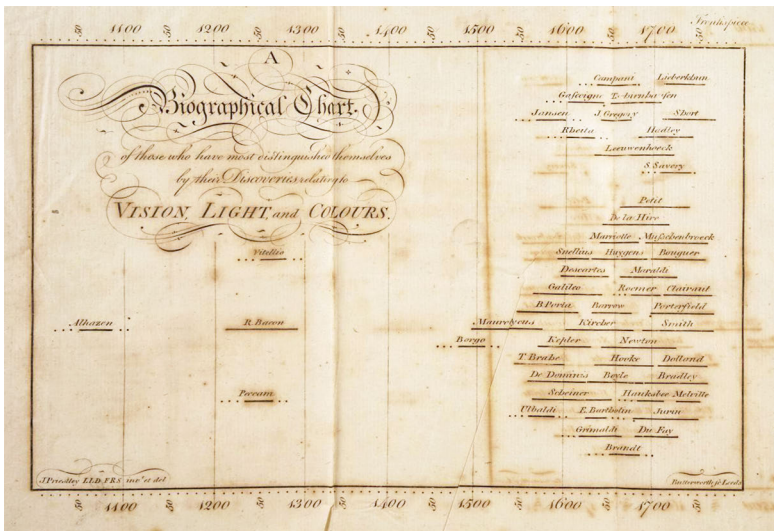 50 1100 50 1200 50 1300 50 1400 50 1500 50 1600 50 1700 50 Frontispiece
A
Biographical Chart.
of those who have most distinguished themselves
by their Discoveries relating to
VISION, LIGHT, and COLOURS.
Campani Lieberkhun
Gascoigne Tschirnhausen
Jansen J. Gregory Short
Rheita Hadley
Leeuwenhoeck
S. Savery
Petit
De la Hire
Marriotte Musschenbroeck
Vitellio Snellius Huygens Bouguer
Descartes Maraldi
Galileo Roemer Clairaut
B. Porta Barrow Porterfield
Alhazen R. Bacon Maurolycus Kircher Smith
Borgo Kepler Newton
T. Brahe Hooke Dolland
De Dominis Boyle Bradley
Peccam Scheiner Hauksbee Melville
Ubaldi E. Bartholin Jurin
Grimaldi Du Fay
Brandt
J. Priestley LL.D. F.R.S. inv.t et del. Butterworth sc. Leeds
1100 50 1200 50 1300 50 1400 50 1500 50 1600 50 1700 50